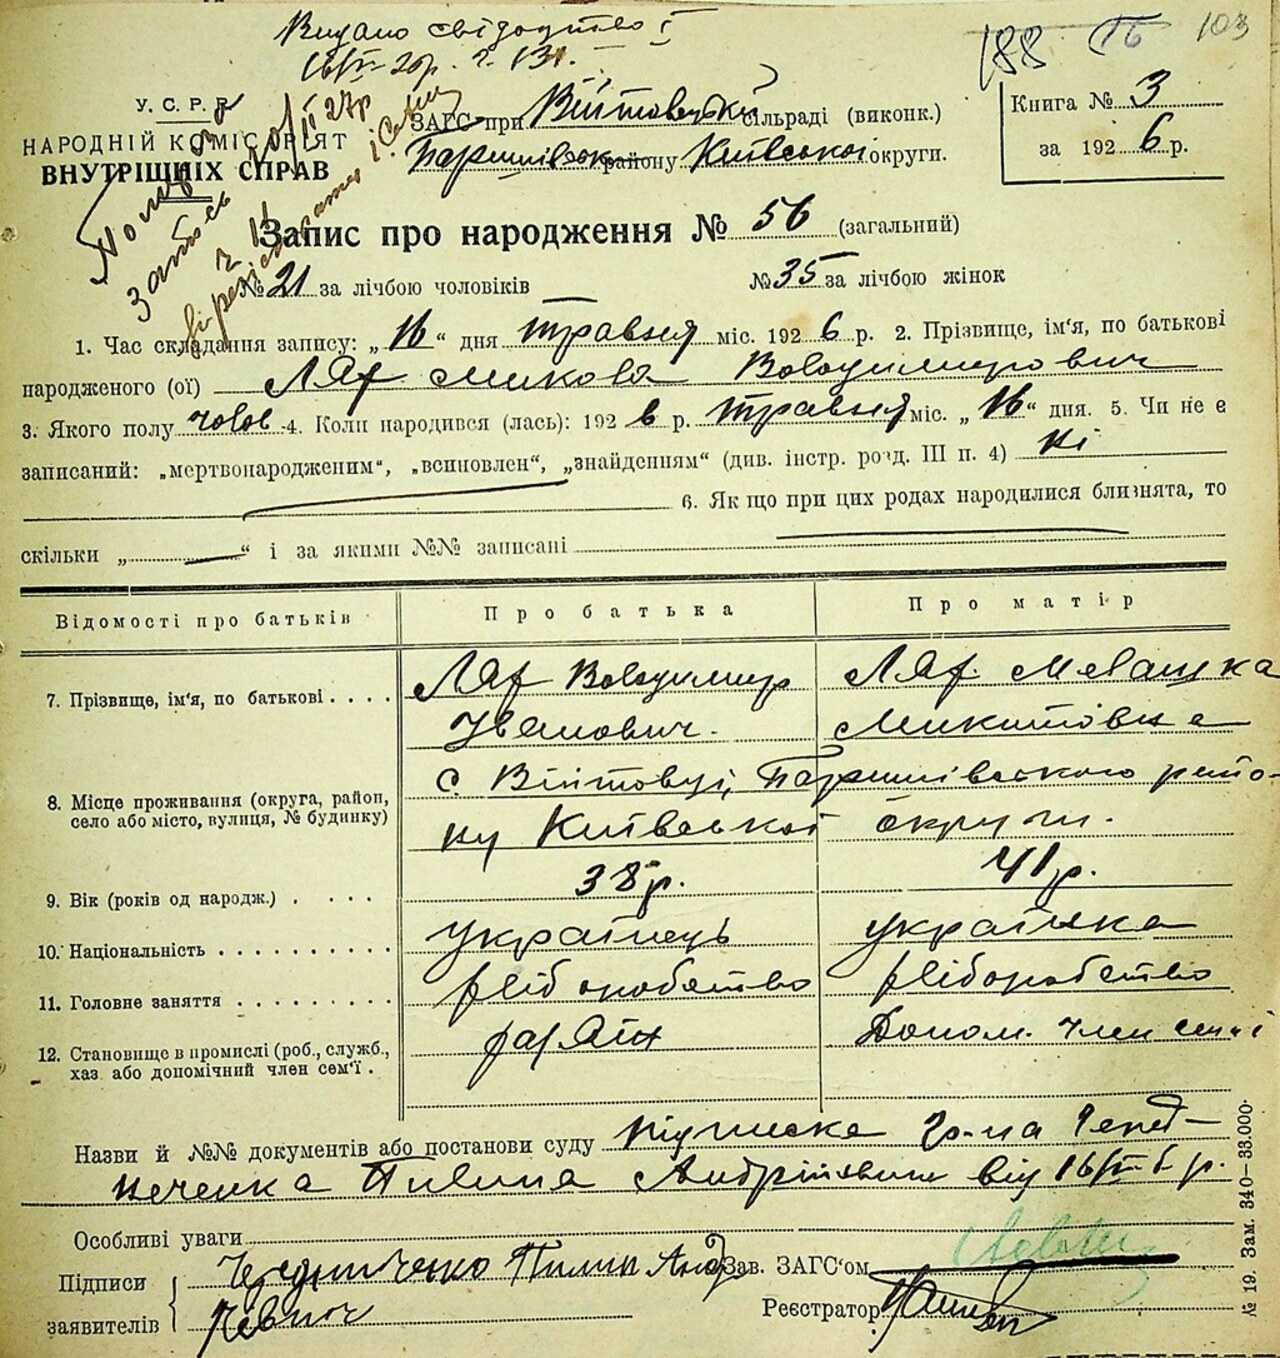 Видано свідоцтво
188
103
У. С. Р. Р.
НАРОДНІЙ КОМІСАРІЯТ
ВНУТРІШНІХ СПРАВ
ЗАГС при Війтовецькій сільраді (виконк.)
Баришівськ району Київської округи.
Книга № 3
за 1926 р.
Запис про народження № 56 (загальний)
№ 21 за лічбою чоловіків № 35 за лічбою жінок
1. Час складання запису: „16“ дня травня міс. 1926 р. 2. Прізвище, ім'я, по батькові
народженого (ої) Лях Микола Володимирович
3. Якого полу чолов 4. Коли народився (лась): 1926 р. травня міс. „16“ дня. 5. Чи не є
записаний: „мертвонародженим“, „всиновлен“, „знайденням“ (див. інстр. розд. III п. 4) Ні
6. Як що при цих родах народилися близнята, то
скільки „ “ і за якими №№ записані
Відомості про батьків Про батька Про матір
7. Прізвище, ім'я, по батькові . . . . Лях Володимир Іванович. Лях Мелашка Микитовна
8. Місце проживання (округа, район, село або місто, вулиця, № будинку) с. Війтовці, Баришівського райо-
ну Київської округи.
9. Вік (років од народж.) . . . . 38 р. 41 р.
10. Національність . . . . . . . . . українець українка
11. Головне заняття . . . . . . . . . хліборобство хліборобство
12. Становище в промислі (роб., служб., хаз. або допомічний член сем'ї . хазяїн Допом. член семї
Назви й №№ документів або постанови суду підписка гр-на Черед-
ниченка Пилипа Андрійовича від 16/V-6 р.
Особливі уваги
Підписи заявителів Чередниченко Пилип Анд
Зав. ЗАГС'ом
Реєстратор
№ 19. Зам. 340—33.000.